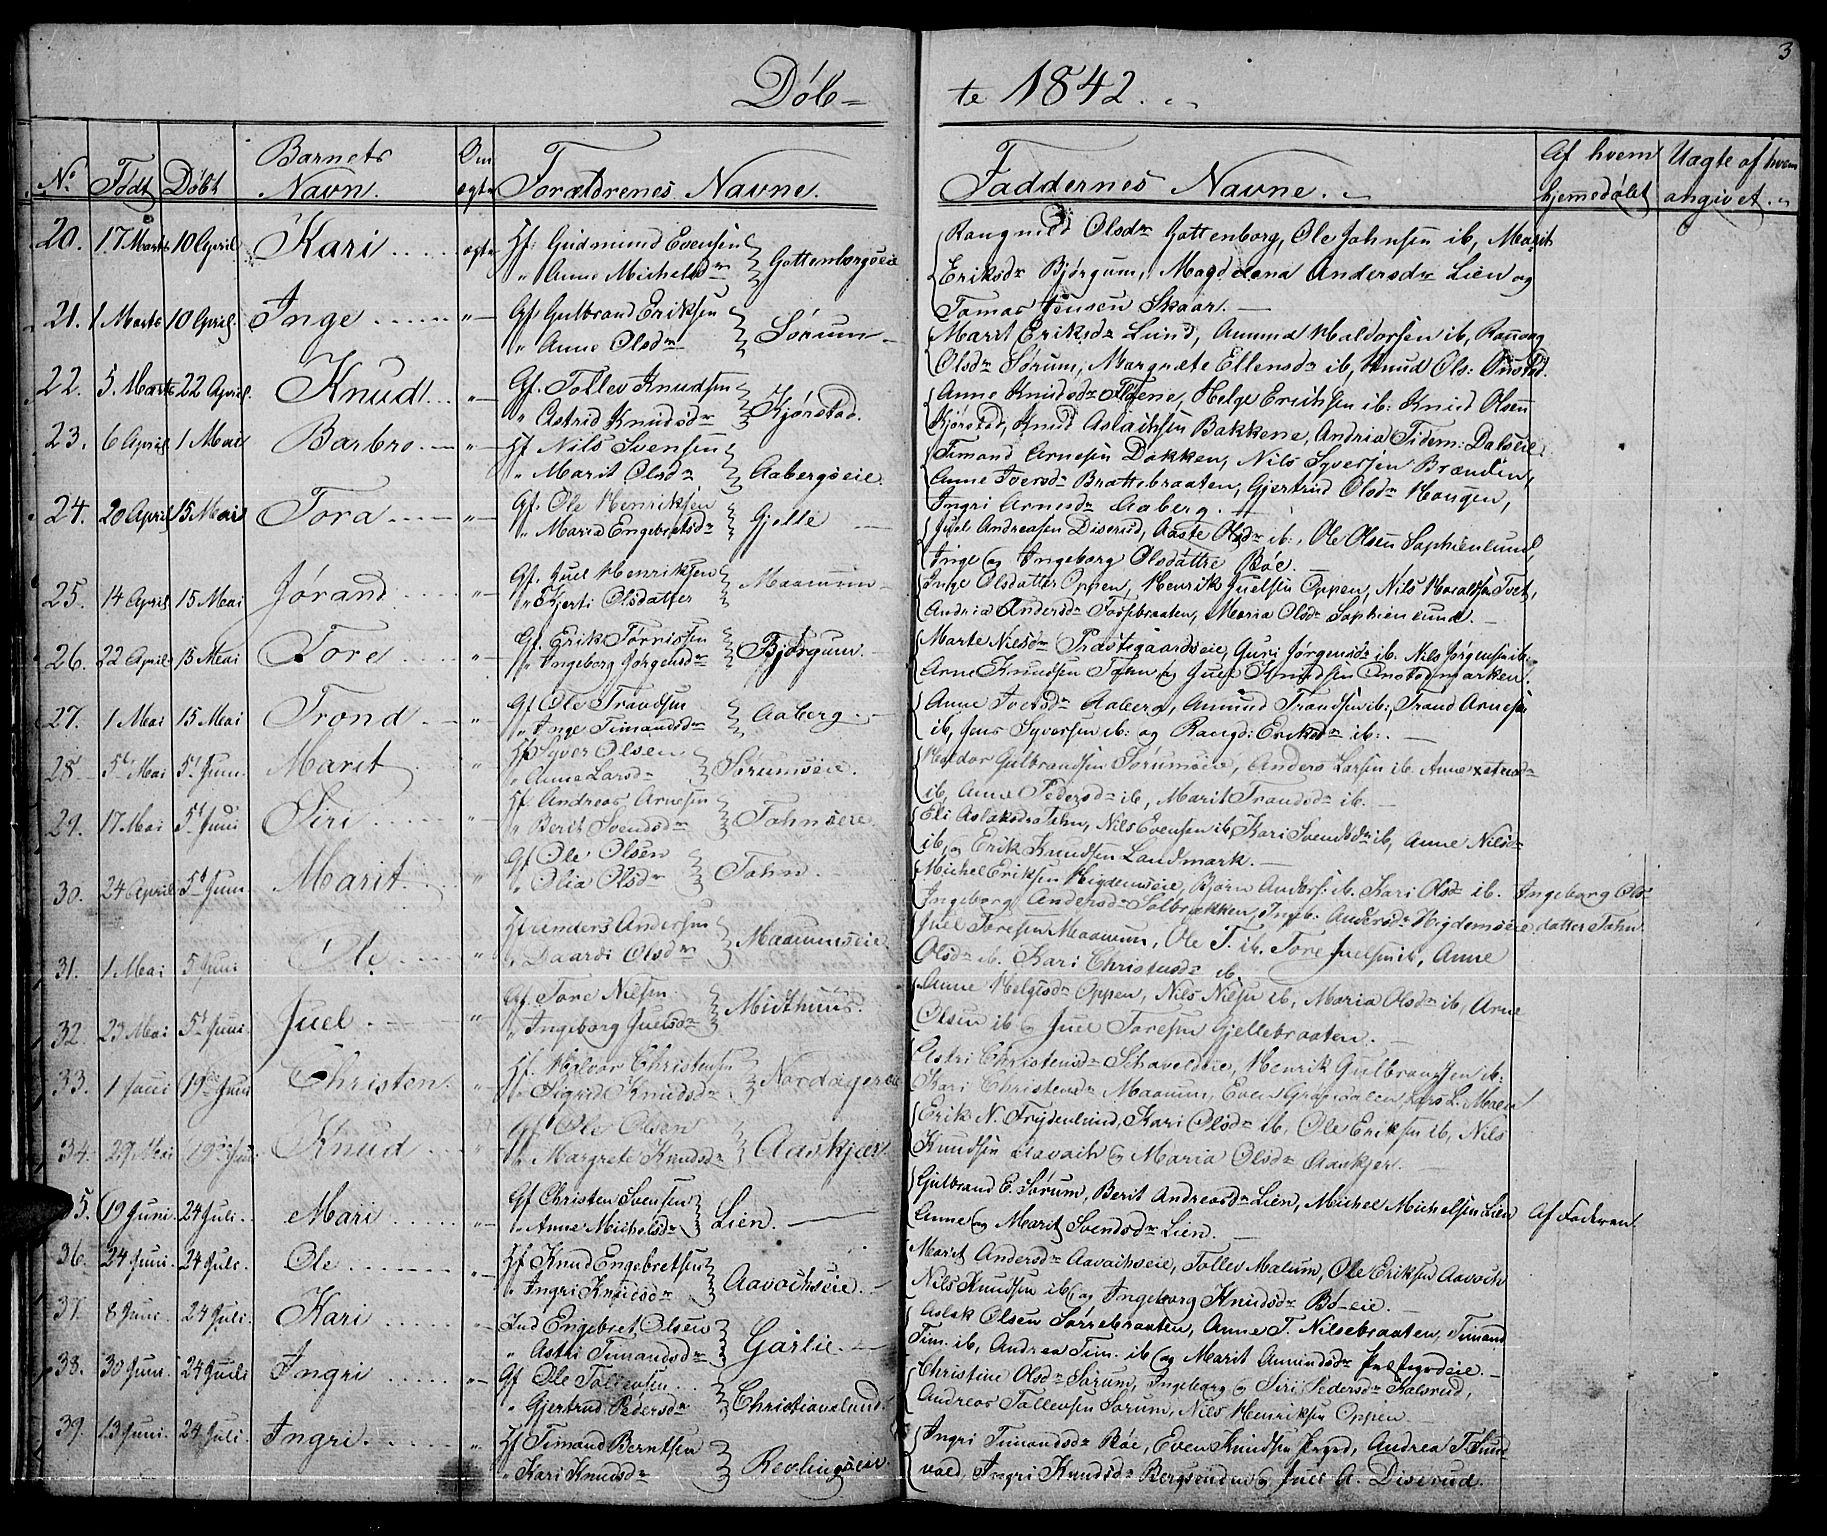 3
Døb=
te 1842.
No. Født Døbt Barnets Navn. Om ægte Forældrenes Navne.
Faddernes Navne. Af hvem hjemmedøbt Uægte af hvem angivet.
20. 17 Marts 10 April Kari ægte Hf: Gudmund Evensen
" Anne Michelsdr Gottenborgseie
Rangnild Olsdr Gottenborg, Ole Johnsen ib, Marit
Eriksdr Bjørgum, Magdelena Andersdr Lien og
Tomas Jensen Skaar.
21. 1 Marts 10 April. Inge " Gf. Gulbrand Eriksen
" Anne Olsdr Sørum
Marit Eriksdr Lund, Amund Haldorsen ib, Rangvog
Olsdr Sørum, Margræte Ellensdr ib, Knud Ols:
22. 5. Marts 22 April. Knud " Gf. Tollev Knudsen
" Astrid Knudsdr Kjørstad.
Anne Knudsdr Helge Eriksen ib: Knud Olsen
Kjørstad, Knud Aslachsen Bakkene, Andria Tidem: Dalseie
23. 6 April 1 Mai Barbro " Hf Nils Svensen
" Marit Olsdr Aabergseie.
Timand Arnesen Dokken, Nils Syversen Brænden,
Anne Iversdr Brattebraaten, Gjertrud Olsdr Haugen,
Ingri Arnesdr Aaberg.
24. 20 April 15 Mai Tora " Gf. Ole Henriksen
" Maria Engebretsdr Gjelle
Juel Andreasen Diserud, Aaste Olsdr ib:, Ole Olsen Sophienlund
Inge og Ingeborg Olsdøttre Bøe.
25. 14 April 15 Mai Jørand " Gf. Juel Henriksen
" Kjerti Olsdatter Maanum
Inge Olsdatter Oppen, Henrik Juelsen Oppen, Nils Tvet,
Andria Andersdr Fossebraaten, Maria Olsdr Sophienlund.
26. 22 April 15 Mai Tore " Gf. Erik Tørrissen
" Ingeborg Jørgensdr Bjørgum
Marte Nilsdr Præstegaardseie, Guri Jørgensdr ib. Nils Jørgensen ib.
Arne Knudsen Tahn og Juel Knudsen
27. 1 Mai 15 Mai Trond " Gf Ole Trandsen
" Inge Timandsdr Aaberg
Anne Iversdr Aaberg, Amund Trandsen ib:, Trand Arnesen
ib, Jens Syversen ib: og Rangd: Eriksdr ib:.
28 5te Mai 5t Juni Marit " Hf Syver Olsen
" Anne Larsdr Sørumseie.
Haldor Gulbrandsen Sørumseie, Anders Larsen ib. Anne
ib, Anne Pedersdr ib, Marit Trandsdr ib.
29. 17 Mai 5t Juni Siri " Hf. Andreas Arnesen
" Berit Svendsdr Tahnseie.
Eli Aslaksdr Tahn, Nils Evensen ib, Kari Svendsdr ib, Anne Nilsdr
ib, og Erik Knudsen Landmark.
30. 24 April 5t Juni Marit " Gf Ole Olsen
" Olia Olsdr Tahn
Michel Eriksen Higdemseie, Bjørn Anders: ib. Kari Olsdr ib.
Ingeborg Andersdr Solbrækken, Ingeb: Andersdr Higdemseie
Ingeborg Ols
datter Tahn
31. 1 Mai 5 Juni Ole " Hf Anders Andersen
" Olsdr Maanumseie
Juel Toresen Maanum, Ole T. ib. Tore Juelsen ib, Anne
Olsdr ib. Kari Christensdr ib.
32. 23 Mai 5t Juni Juel " Gf Tore Nilsen
" Ingeborg Juelsdr Midthuus.
Anne Helgesdr Oppen, Nils Nilsen ib, Maria Olsdr ib, Arne
Olsen ib og Juel Toresen Gjellebraaten.
33. 1 Juni 19de Juni Christen " Hf. Halvor Christensen
" Sigrid Knudsdr
Astri Christensdr Henrik Gulbrandsen ib:
Kari Christensdr Maanum, Even Lars L. Moen
34. 29 Mai 19de Juni Knud " Gf Ole Olsen
" Margrete Knudsdr Aaskjær
Erik N. Frydenlund, Kari Olsdr ib, Ole Eriksen ib, Nils
Knudsen Aavach og Maria Olsdr Aaskjer.
35. 19 Juni 24 Juli. Mari " Gf Christen Svensen
" Anne Michelsdr Lien.
Gulbrand E. Sørum, Berit Andreasdr Lien, Michel Michelsen Lien
Anne og Marit Svendsdr Lien.
Af Faderen
36. 24 Juni. 24 Juli. Ole " Hf Knud Engebretsen
" Ingri Knudsdr Aavachseie.
Marit Andersdr Aavachseie, Tollev Malum, Ole Eriksen Aavach
Nils Knudsen ib og Ingeborg Knudsdr Bøeie.
37. 8 Juni 24 Juli. Kari " Ind Engebret Olsen
" Astri Timandsdr Garlie.
Aslak Olsen Sørrebraaten, Anne T. Nilsebraaten, Timand
Tim. ib, Andrea Tim. ib og Marit Amundsdr
38. 30 Juni. 24 Juli Ingri " Gf Ole Tollevsen
" Gjertrud Pedersdr Christianslund
Christine Olsdr Sørum, Ingeborg og Siri Pedersdr Kalsrud,
Andreas Tollevsen Sørum, Nils Henriksen Oppen.
39. 13 Juni. 24 Juli. Ingri. " Hf Timand Berntsen
" Kari Knudsdr Revlingseie
Ingri Timandsdr Bøe, Even Knudsen Andrea T.
vold, Ingri Knudsdr Bergsenden og Juel A. Diserud.